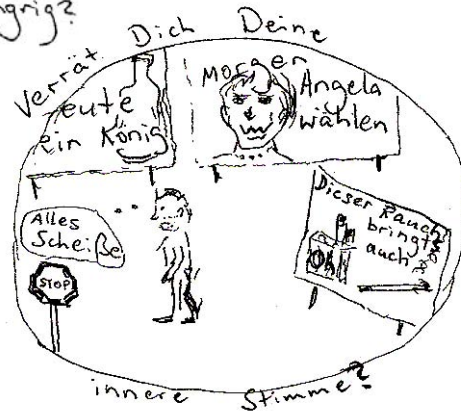 Verrät Dich Deine
eute
ein König
Morgen
Angela
wählen
Alles
Scheiße
STOP
Dieser Rauch
bringt
auch
Oh
innere Stimme?